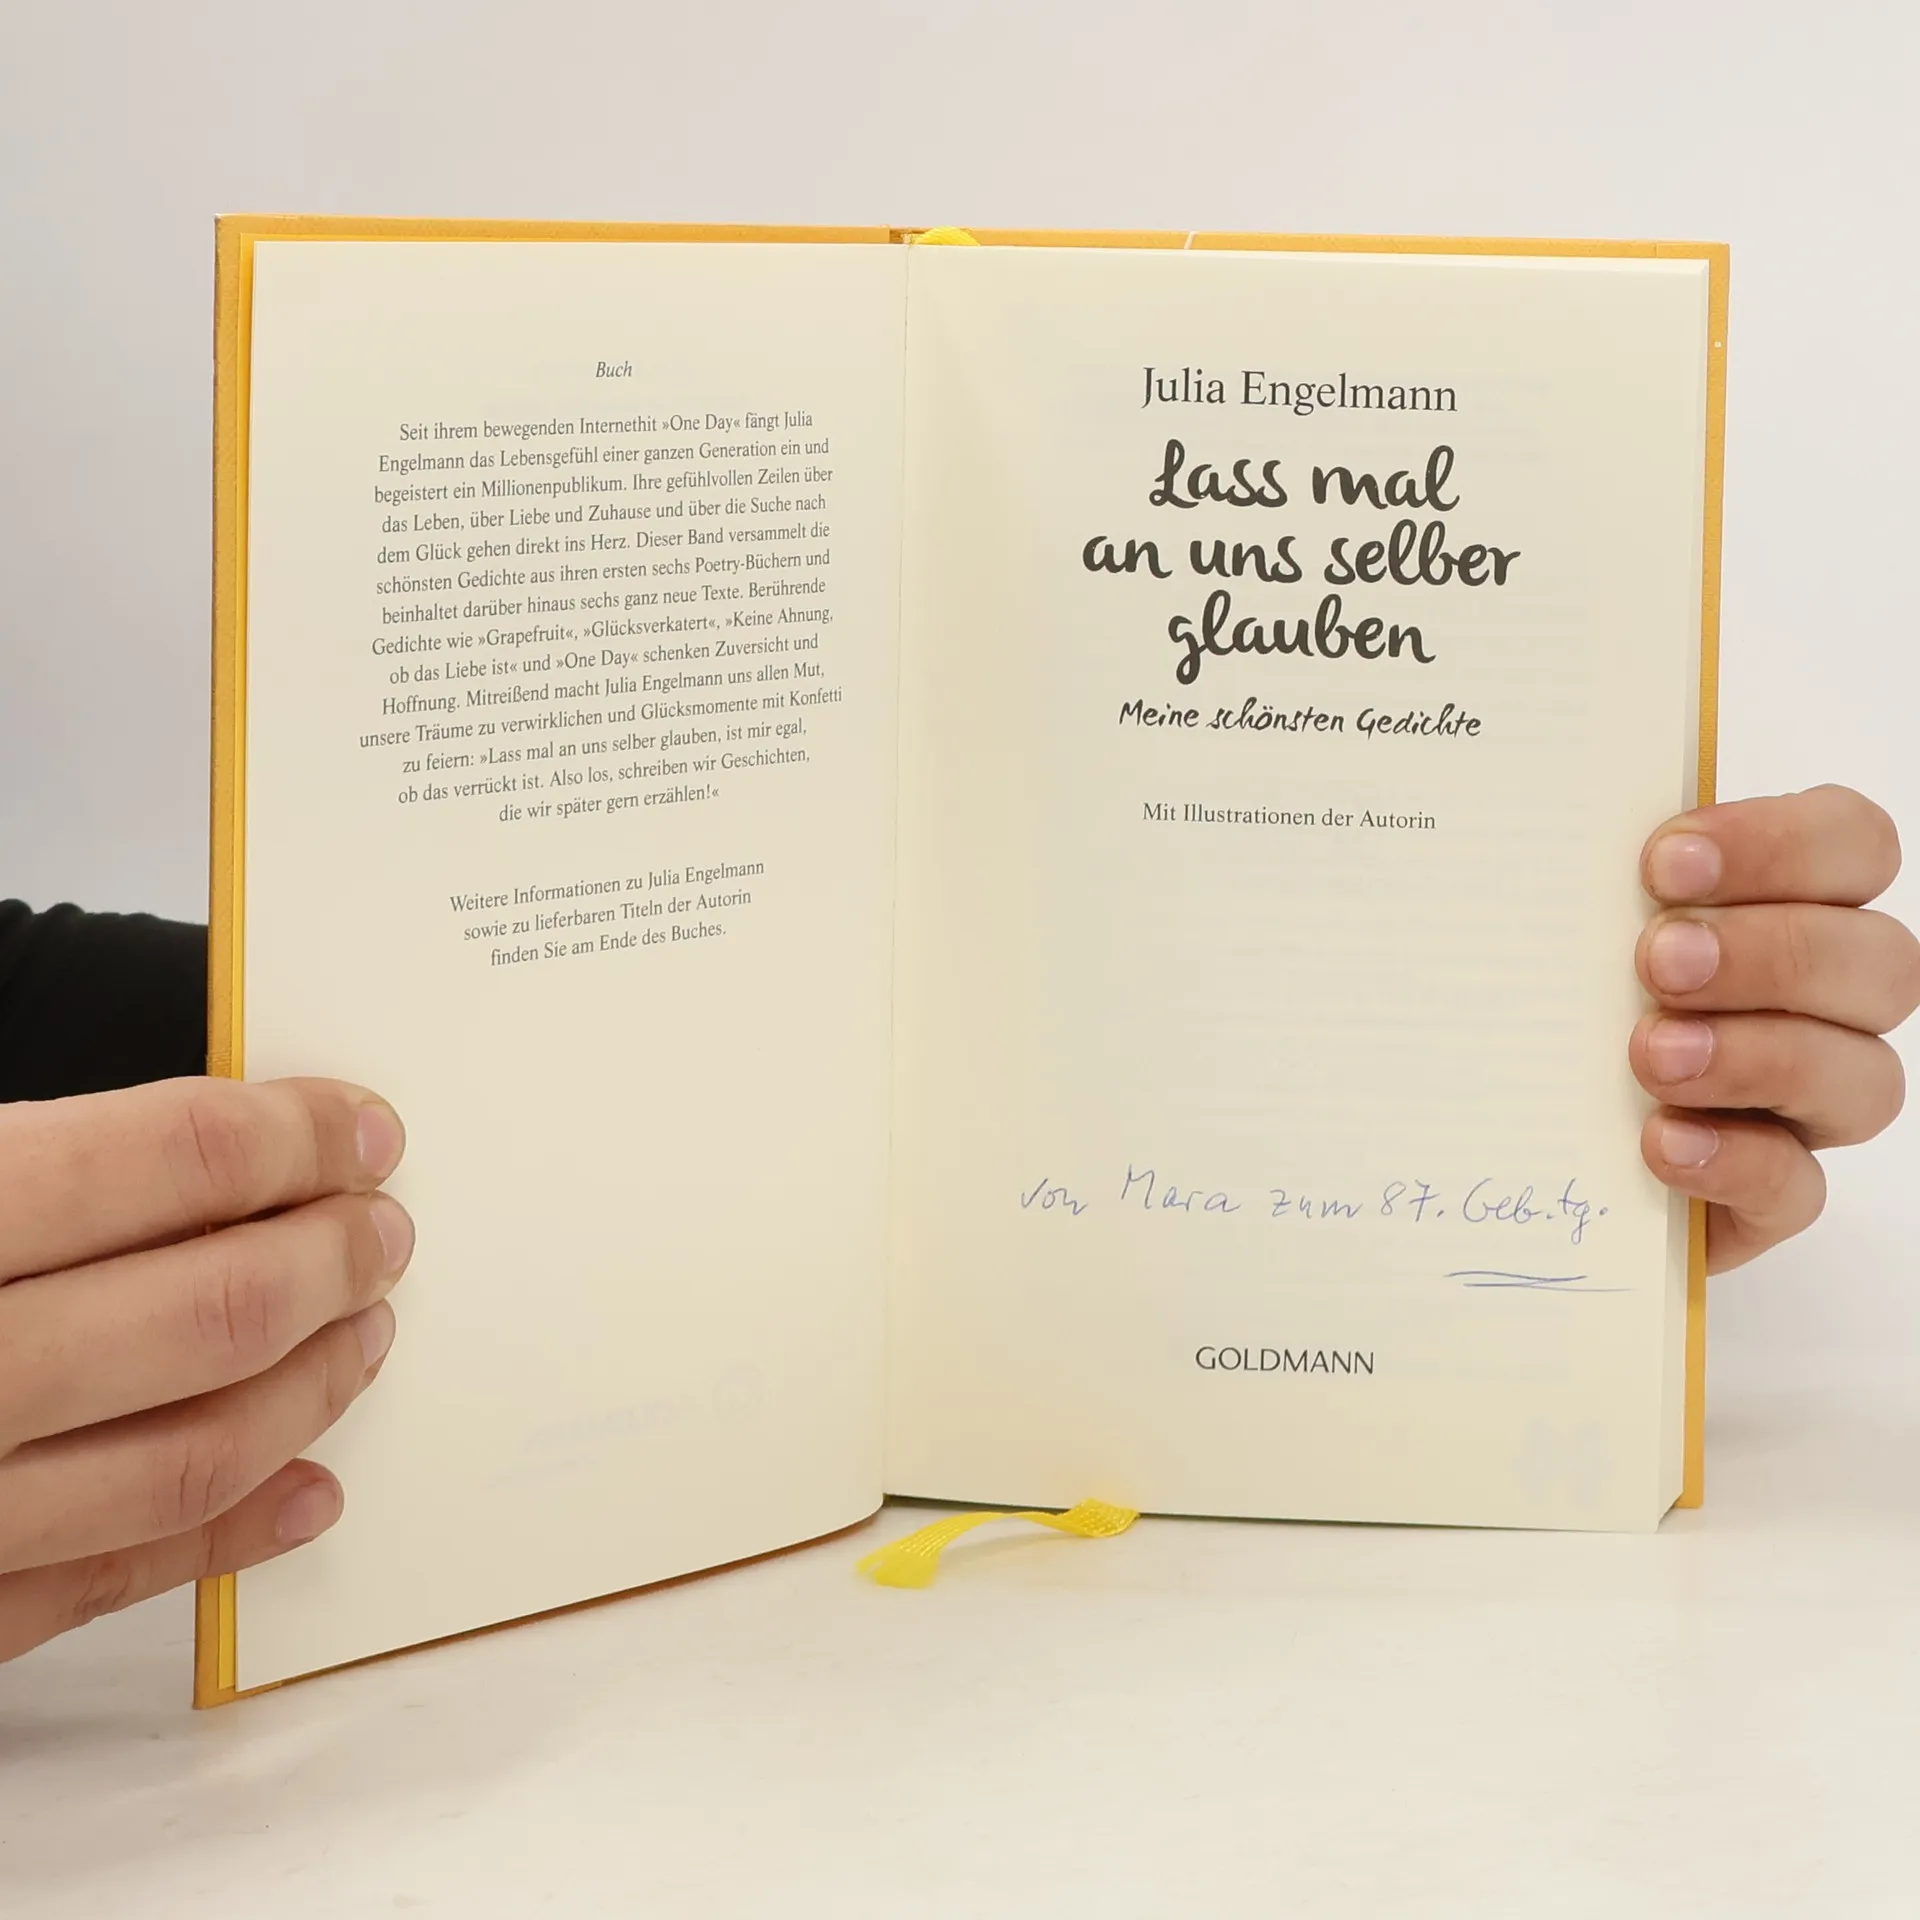 Buch
Seit ihrem bewegenden Internethit »One Day« fängt Julia
Engelmann das Lebensgefühl einer ganzen Generation ein und
begeistert ein Millionenpublikum. Ihre gefühlvollen Zeilen über
das Leben, über Liebe und Zuhause und über die Suche nach
dem Glück gehen direkt ins Herz. Dieser Band versammelt die
schönsten Gedichte aus ihren ersten sechs Poetry-Büchern und
beinhaltet darüber hinaus sechs ganz neue Texte. Berührende
Gedichte wie »Grapefruit«, »Glücksverkatert«, »Keine Ahnung,
ob das Liebe ist« und »One Day« schenken Zuversicht und
Hoffnung. Mitreißend macht Julia Engelmann uns allen Mut,
unsere Träume zu verwirklichen und Glücksmomente mit Konfetti
zu feiern: »Lass mal an uns selber glauben, ist mir egal,
ob das verrückt ist. Also los, schreiben wir Geschichten,
die wir später gern erzählen!«
Weitere Informationen zu Julia Engelmann
sowie zu lieferbaren Titeln der Autorin
finden Sie am Ende des Buches.
Julia Engelmann
Lass mal
an uns selber
glauben
Meine schönsten Gedichte
Mit Illustrationen der Autorin
von Mara zum 87. Geb.tg.
GOLDMANN